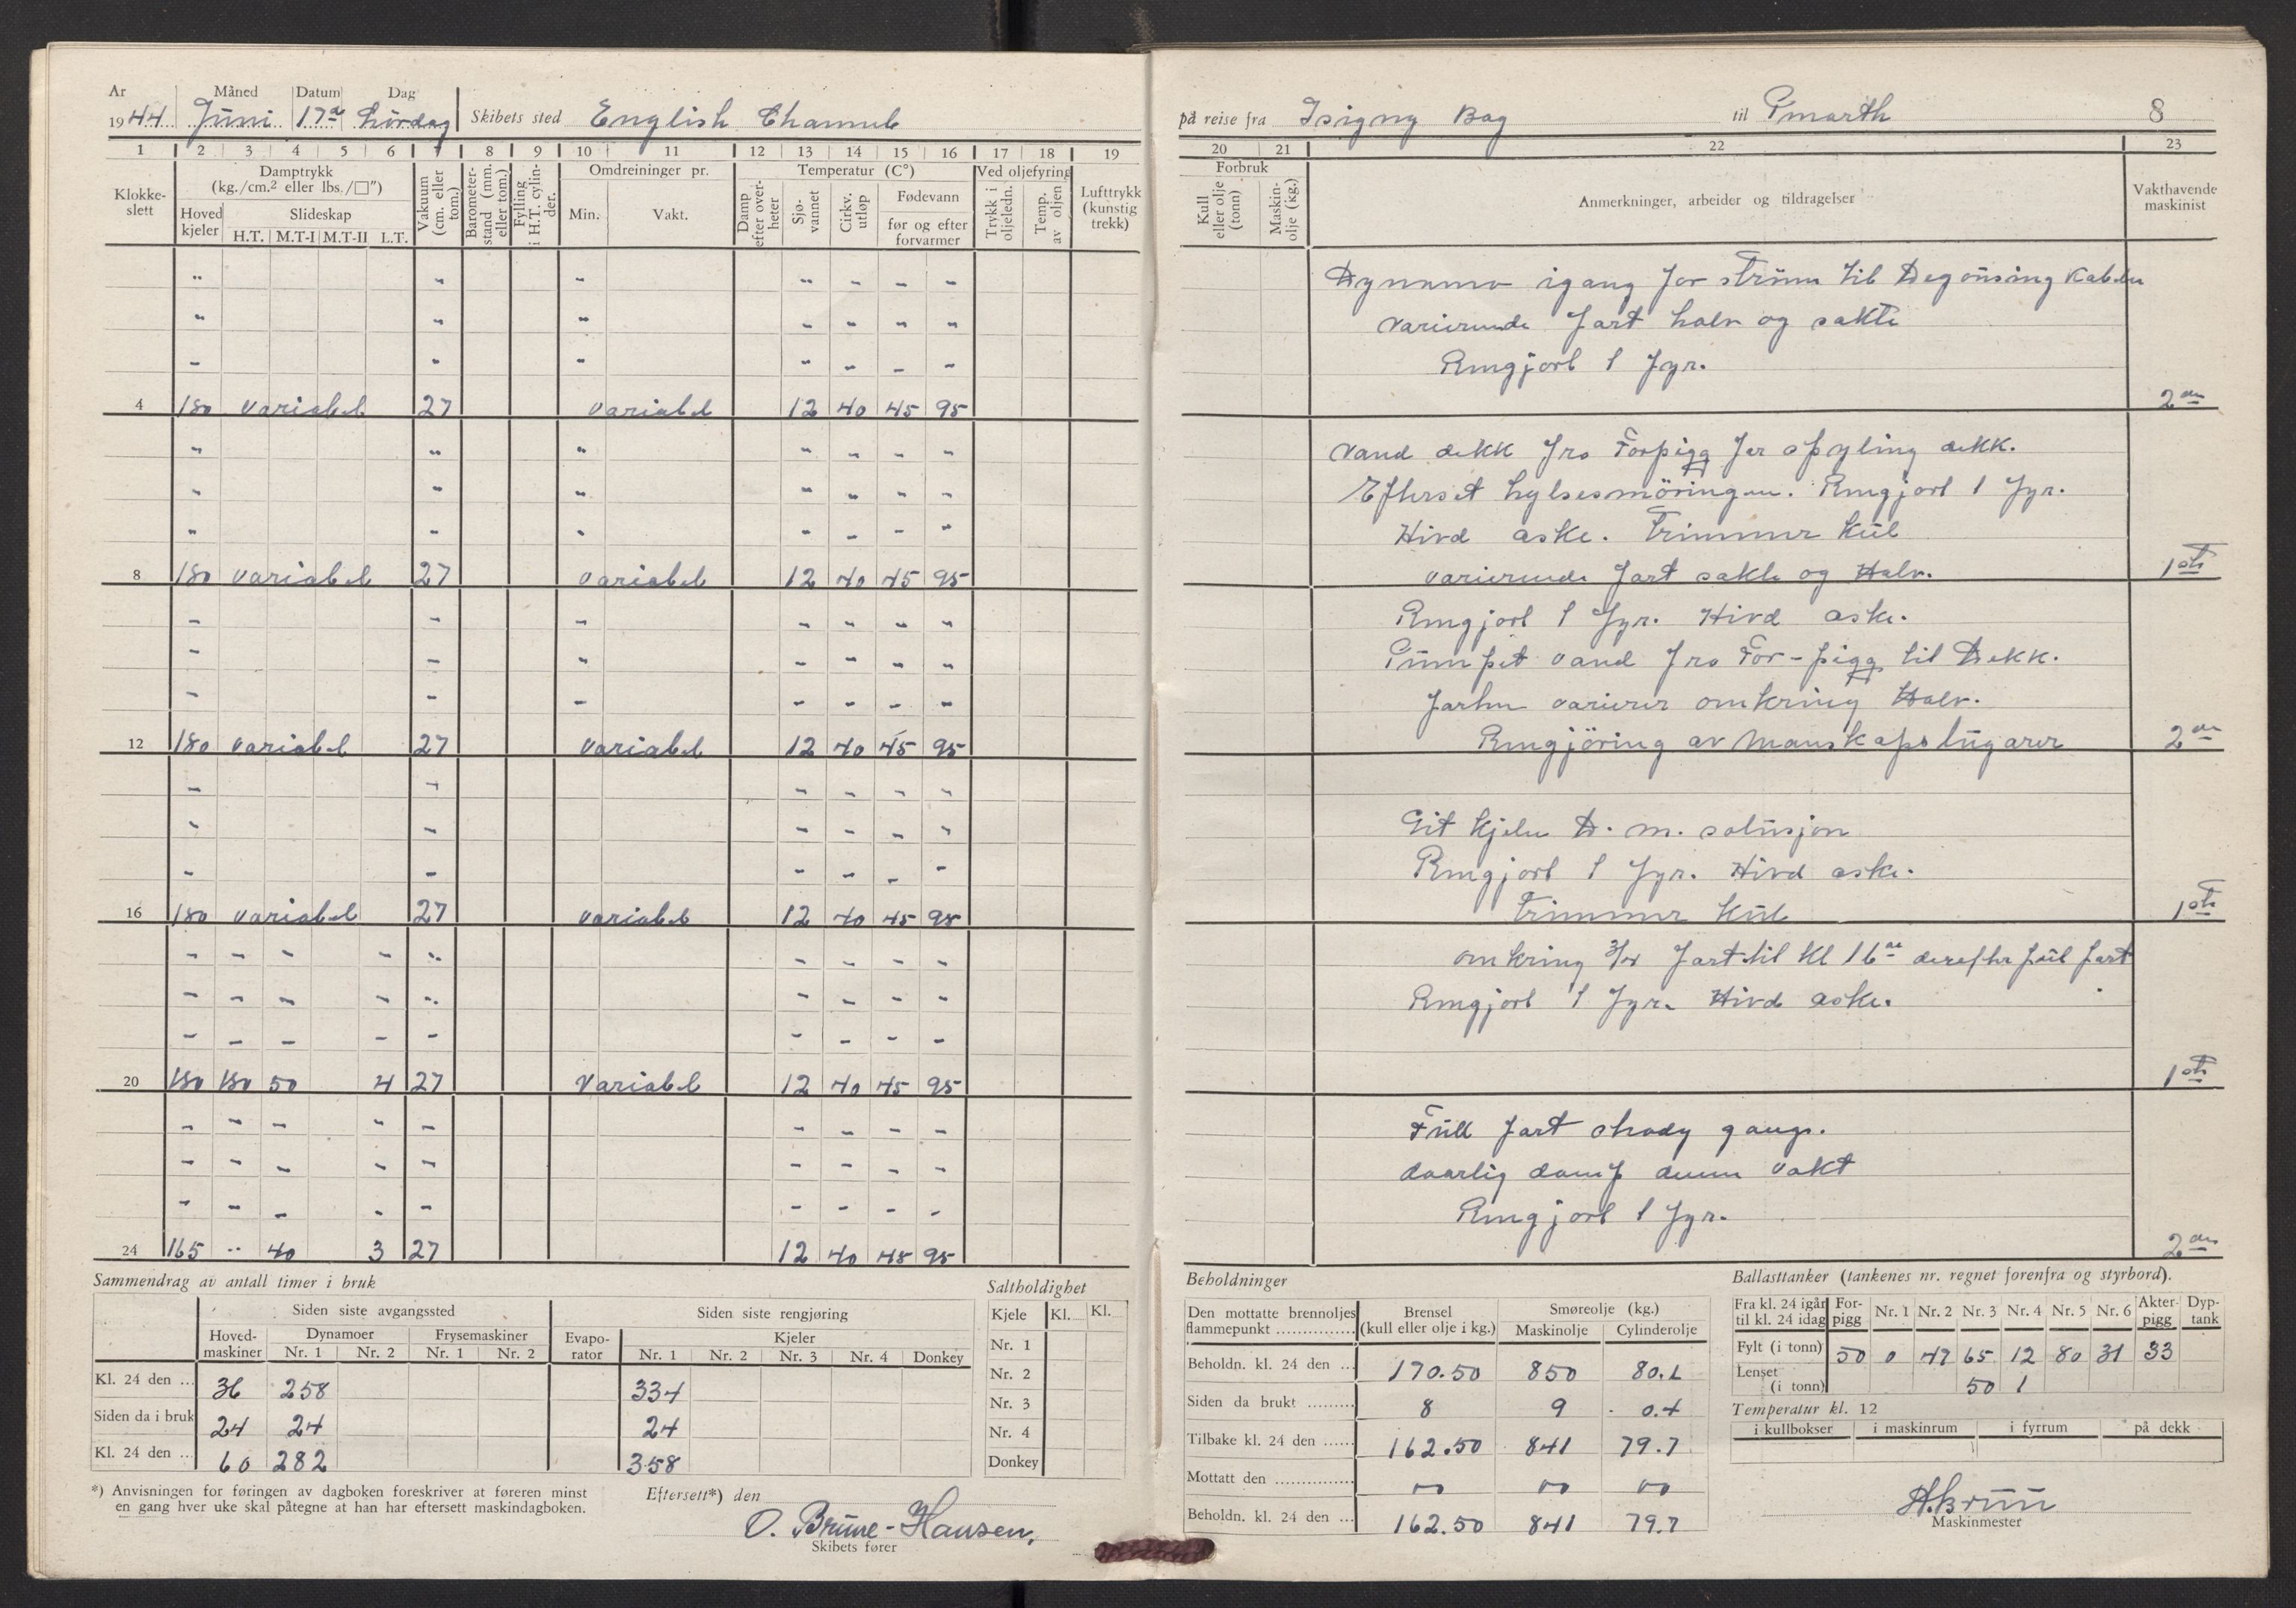 År Måned Datum Dag
1944 Juni 17de Lördag Skibets sted English Channel
1 2 3 4 5 6 7 8 9 10 11 12 13 14 15 16 17 18 19
Klokke-slett
Damptrykk (kg./cm.² eller lbs./□")
Hoved kjeler
Slideskap
H.T. M.T-I M.T-II L.T.
Vakuum (cm. eller tom.)
Barometer-stand (mm. eller tom.)
Fylling i H.T. cylin-der.
Omdreininger pr.
Min. Vakt.
Temperatur (C°)
Damp efter over-heter
Sjø-vannet
Cirkv. utløp
Fødevann
før og efter forvarmer
Ved oljefyring
Trykk i oljeledn.
Temp. av oljen
Lufttrykk (kunstig trekk)
" " " " " " "
" " " " " " "
" " " " " " "
4 180 variabel 27 variabel 12 40 45 95
" " " " " " "
" " " " " " "
" " " " " " "
8 180 variabel 27 variabel 12 40 45 95
" " " " " " "
" " " " " " "
" " " " " " "
12 180 variabel 27 variabel 12 40 45 95
" " " " " "
" " " " " "
" " " " " "
16 180 variabel 27 variabel 12 40 45 95
" " " " " " " " "
" " " " " " " " "
" " " " " " " " "
20 180 180 50 4 27 Variabel 12 40 45 95
" " " " " " " " "
" " " " " " " " "
" " " " " " " " "
24 165 " 40 3 27 12 40 45 95
Sammendrag av antall timer i bruk
Siden siste avgangssted Siden siste rengjøring
Hoved-maskiner Dynamoer Frysemaskiner Evapo-rator Kjeler
Nr. 1 Nr. 2 Nr. 1 Nr. 2 Nr. 1 Nr. 2 Nr. 3 Nr. 4 Donkey
Kl. 24 den ... 36 258 334
Siden da i bruk 24 24 24
Kl. 24 den ... 60 282 358
Saltholdighet
Kjele Kl. Kl.
Nr. 1
Nr. 2
Nr. 3
Nr. 4
Donkey
*) Anvisningen for føringen av dagboken foreskriver at føreren minst
en gang hver uke skal påtegne at han har eftersett maskindagboken.
Eftersett*) den
O. Brune-Hansen,
Skibets fører
på reise fra Isigny Bay til Pmarth 8
20 21 22 23
Forbruk
Kull eller olje (tonn)
Maskin-olje (kg.)
Anmerkninger, arbeider og tildragelser
Vakthavende maskinist
Dynamo igang for strüm til Degousing Kabelen
varierende fart halv og sakte
Rengjort 1 fyr.
2en
Vand dekk fra Forpigg for spyling dekk.
Efterset hylsesmöringen. Rengjort 1 fyr.
Hivd aske. Trimmer kül
varierende fart sakte og Halv.
1ste
Rengjort 1 fyr. Hivd aske.
Pümpet vand fra For-pigg til Dekk.
farten varierer omkring Halv.
Rengjöring av Manskapslügarer
2en
Git kjelen D. M. solüsjon
Rengjort 1 fyr. Hivd aske.
Trimmer kül
1ste
omkring 3/4 fart til kl 16 derefter fül fart
Rengjort 1 fyr. Hivd aske.
1ste
Füll fart stady gange.
daarlig damp denne vakt
Rengjort 1 fyr.
2en
Beholdninger
Den mottatte brennoljes flammepunkt ...............
Brensel (kull eller olje i kg.)
Smøreolje (kg.)
Maskinolje Cylinderolje
Beholdn. kl. 24 den ... 170.50 850 80.1
Siden da brukt ......... 8 9 0.4
Tilbake kl. 24 den ...... 162.50 841 79.7
Mottatt den ...............
Beholdn. kl. 24 den ... 162.50 841 79.7
Ballasttanker (tankenes nr. regnet forenfra og styrbord).
Fra kl. 24 igår til kl. 24 idag For-pigg Nr. 1 Nr. 2 Nr. 3 Nr. 4 Nr. 5 Nr. 6 Akter-pigg Dyp-tank
Fylt (i tonn) 50 0 47 65 12 80 31 33
Lenset (i tonn) 50 1
Temperatur kl. 12
i kullbokser i maskinrum i fyrrum på dekk
Maskinmester